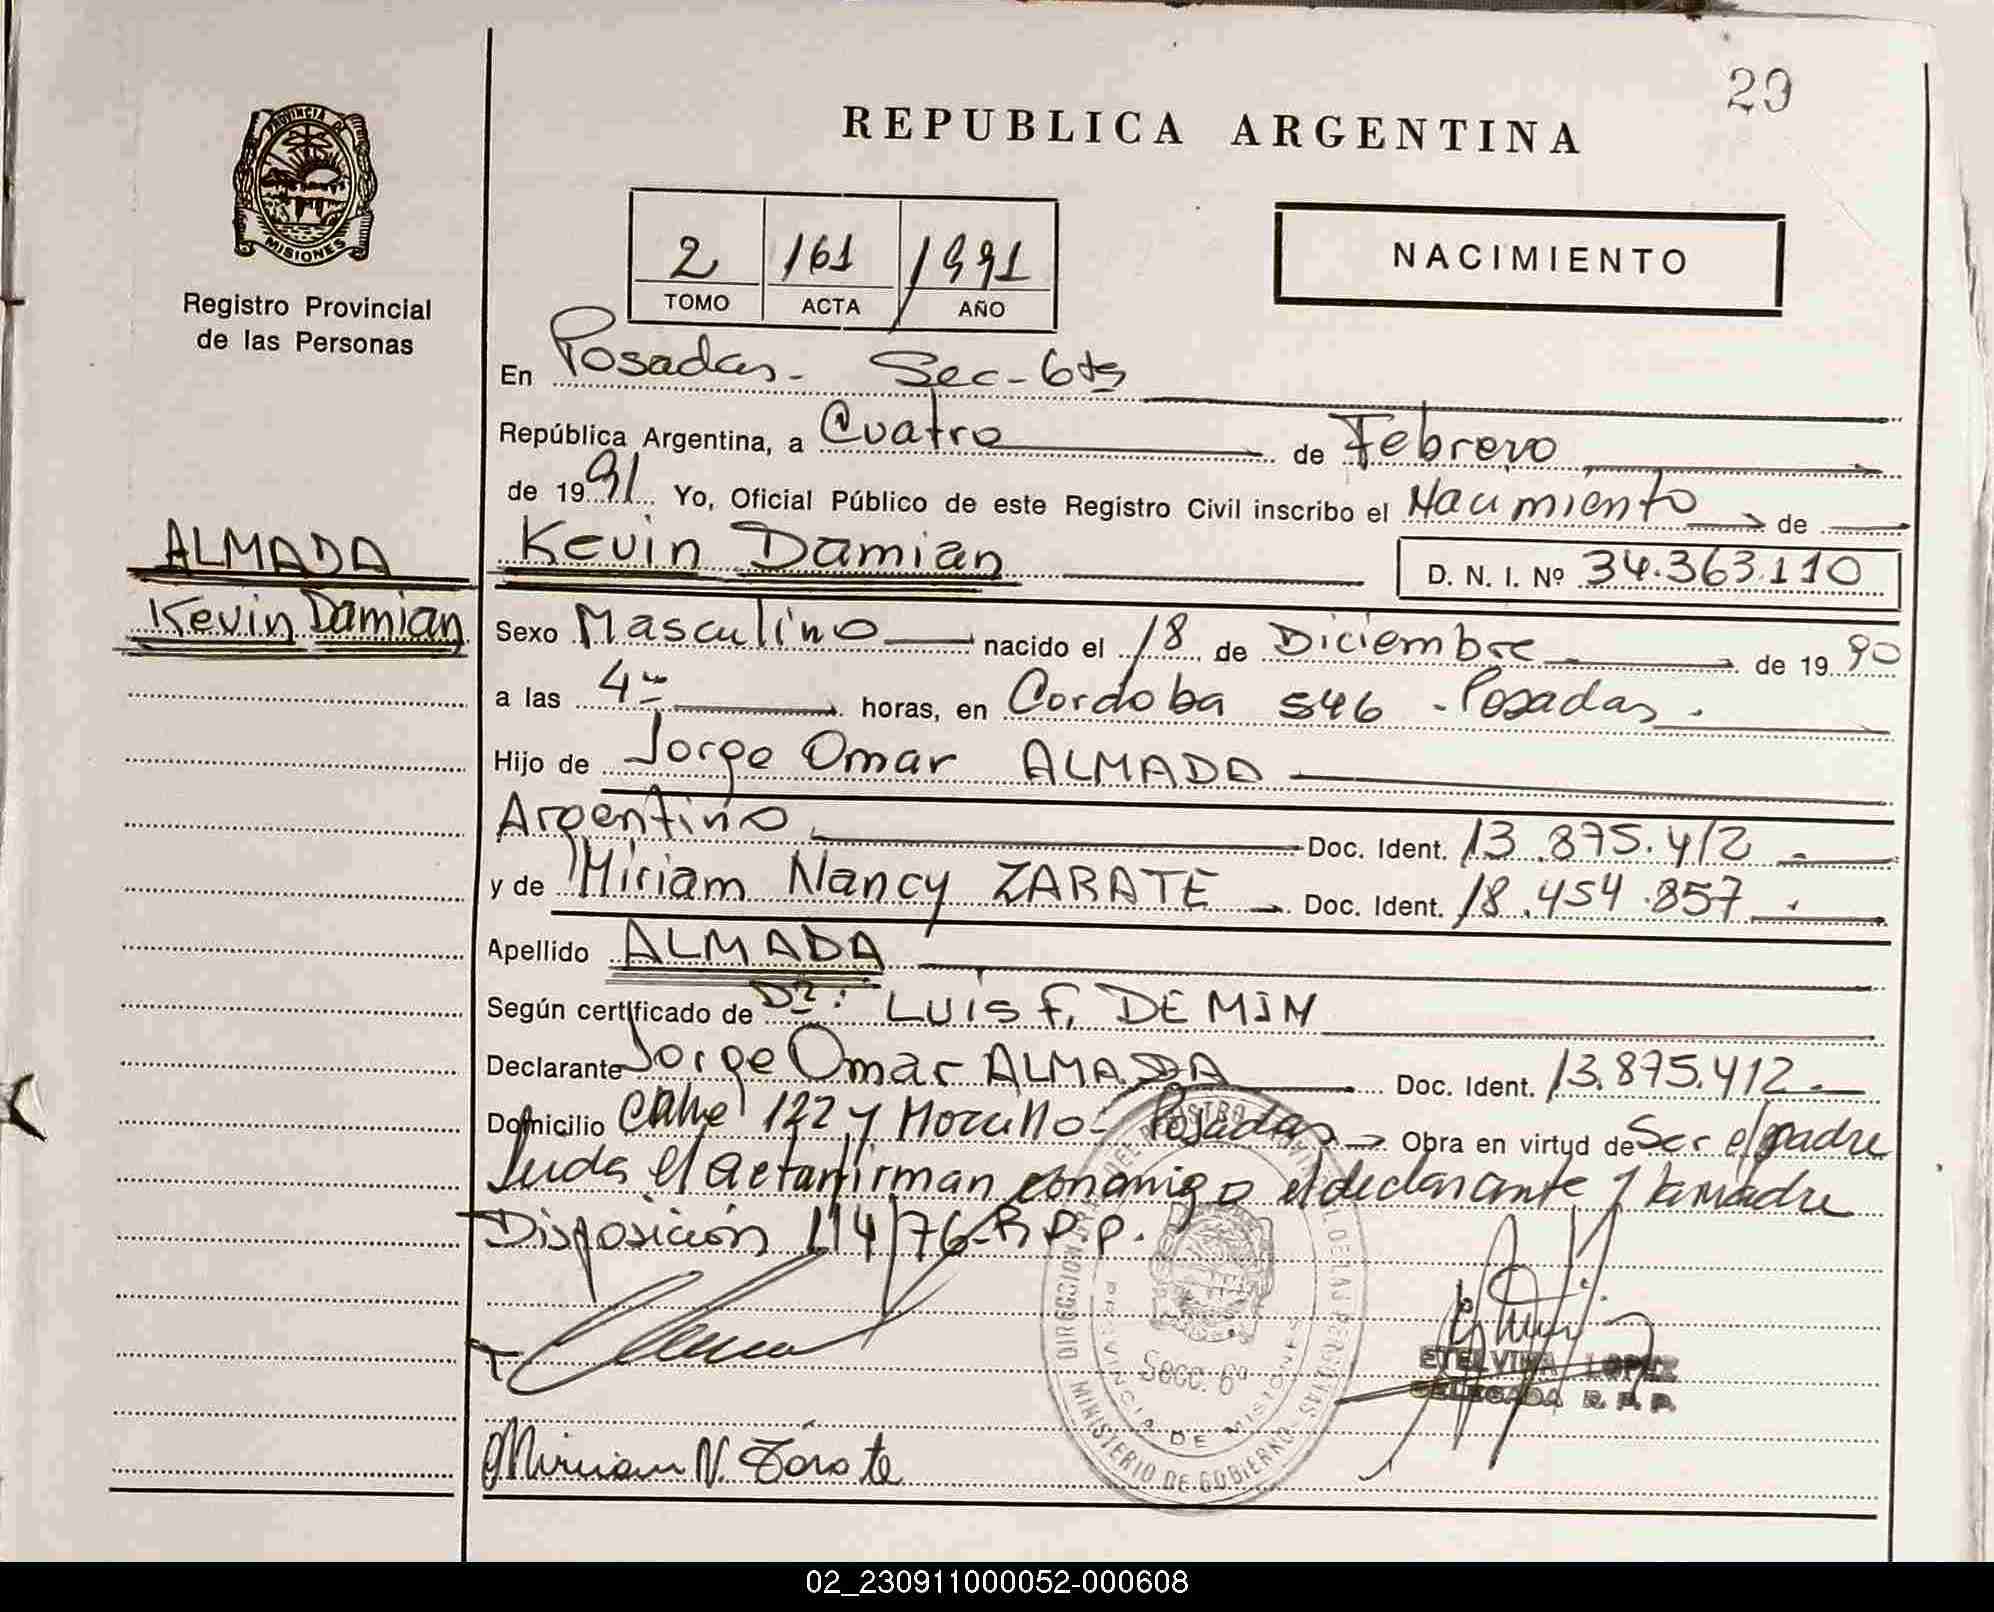 29
REPUBLICA ARGENTINA
PROVINCIA DE
MISIONES
Registro Provincial
de las Personas
2 161 1991
TOMO ACTA AÑO
NACIMIENTO
En Posadas - Sec - 6ta
República Argentina, a Cuatro de Febrero
de 1991 Yo, Oficial Público de este Registro Civil inscribo el Nacimiento de
ALMADA
Kevin Damian
Kevin Damian D. N. I. Nº 34.363.110
Sexo Masculino nacido el 18 de Diciembre de 1990
a las 4 horas, en Cordoba 546 - Posadas.
Hijo de Jorge Omar ALMADA
Argentino Doc. Ident. 13.875.412
y de Miriam Nancy ZARATE Doc. Ident. 18.454.857
Apellido ALMADA
Según certificado de Dr: LUIS F. DEMIN
Declarante Jorge Omar ALMADA Doc. Ident. 13.875.412
Domicilio Calle 122 y Posadas Obra en virtud de Ser el padre
el acta firman conmigo el declarante y la madre
Disposición 114/76-R.P.P.
DIRECCION REGISTRO PROVINCIAL DE LAS PERSONAS
Secc. 6ª
PROVINCIA DE MISIONES
MINISTERIO DE GOBIERNO
ETELVINA LOPEZ
DELEGADA R. P. P.
Miriam N. Zárate
02_230911000052-000608